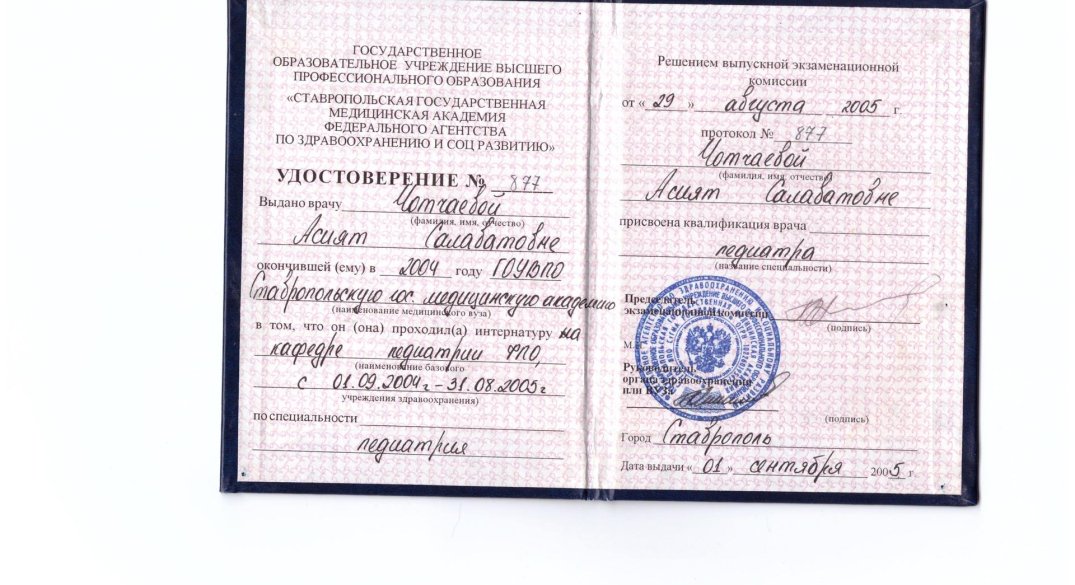 ГОСУДАРСТВЕННОЕ
ОБРАЗОВАТЕЛЬНОЕ УЧРЕЖДЕНИЕ ВЫСШЕГО
ПРОФЕССИОНАЛЬНОГО ОБРАЗОВАНИЯ
«СТАВРОПОЛЬСКАЯ ГОСУДАРСТВЕННАЯ
МЕДИЦИНСКАЯ АКАДЕМИЯ
ФЕДЕРАЛЬНОГО АГЕНТСТВА
ПО ЗДРАВООХРАНЕНИЮ И СОЦ РАЗВИТИЮ»
УДОСТОВЕРЕНИЕ № 877
Выдано врачу Чотчаевой
(фамилия, имя, отчество)
Асият Салаватовне
окончившей (ему) в 2004 году ГОУВПО
Ставропольскую гос. медицинскую академию
(наименование медицинского вуза)
в том, что он (она) проходил(а) интернатуру на
кафедре педиатрии ФПО,
(наименование базового
с 01.09.2004г - 31.08.2005г
учреждения здравоохранения)
по специальности
педиатрия
Решением выпускной экзаменационной
комиссии
от «29» августа 2005 г.
протокол № 877
Чотчаевой
(фамилия, имя, отчество)
Асият Салаватовне
присвоена квалификация врача
педиатра
(название специальности)
Председатель
экзаменационной комиссии
(подпись)
М.П.
Руководитель
органа здравоохранения
или ВУЗа
(подпись)
Город Ставрополь
Дата выдачи «01» сентября 2005 г.